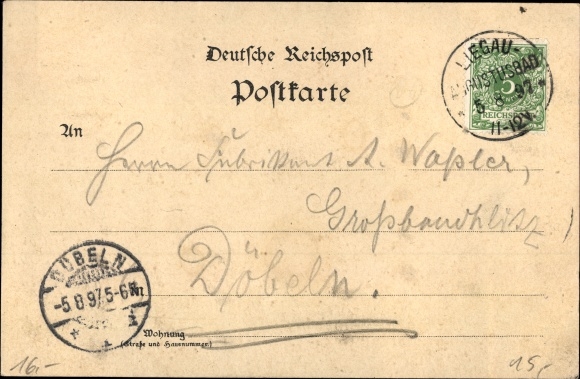 Deutsche Reichspost
Postkarte
LIEGAU-
AUGUSTUSBAD
5 8 97
11-12V.
5
REICHSPOST
An
Herrn Fabrikant A. Wapler,
Döbeln.
DÖBELN
-5 8 97 5-6N
Wohnung
(Straße und Hausnummer)
16,-
15,-